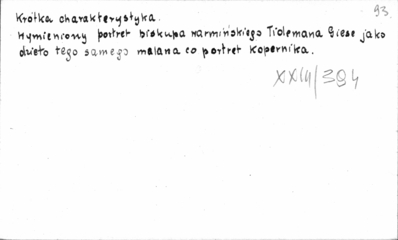 93
Krótka charakterystyka.
Wymieniony portret biskupa warmińskiego Tidemana Giese jako
dzieło tego samego malana co portret Kopernika.
XXIII/394